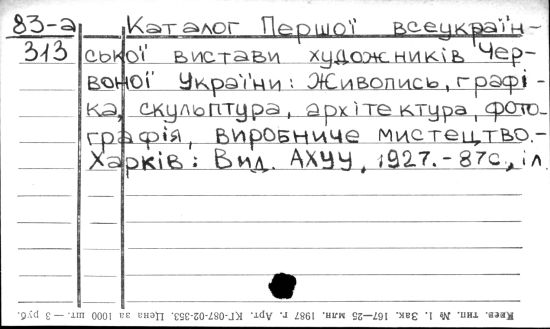 83-а Каталог Першої всеукраїн-
313 ської вистави художників Чер-
воної України: Живопись, графі-
ка, скульптура, архітектура, фото-
графія, виробниче мистецтво.-
Харків: Вид. АХУУ, 1927.- 87с., іл.
Киев. тип. № 1. Зак. 167—25 млн. 1987 г. Арт. КГ-087-02-353. Цена за 1000 шт. — 3 руб.